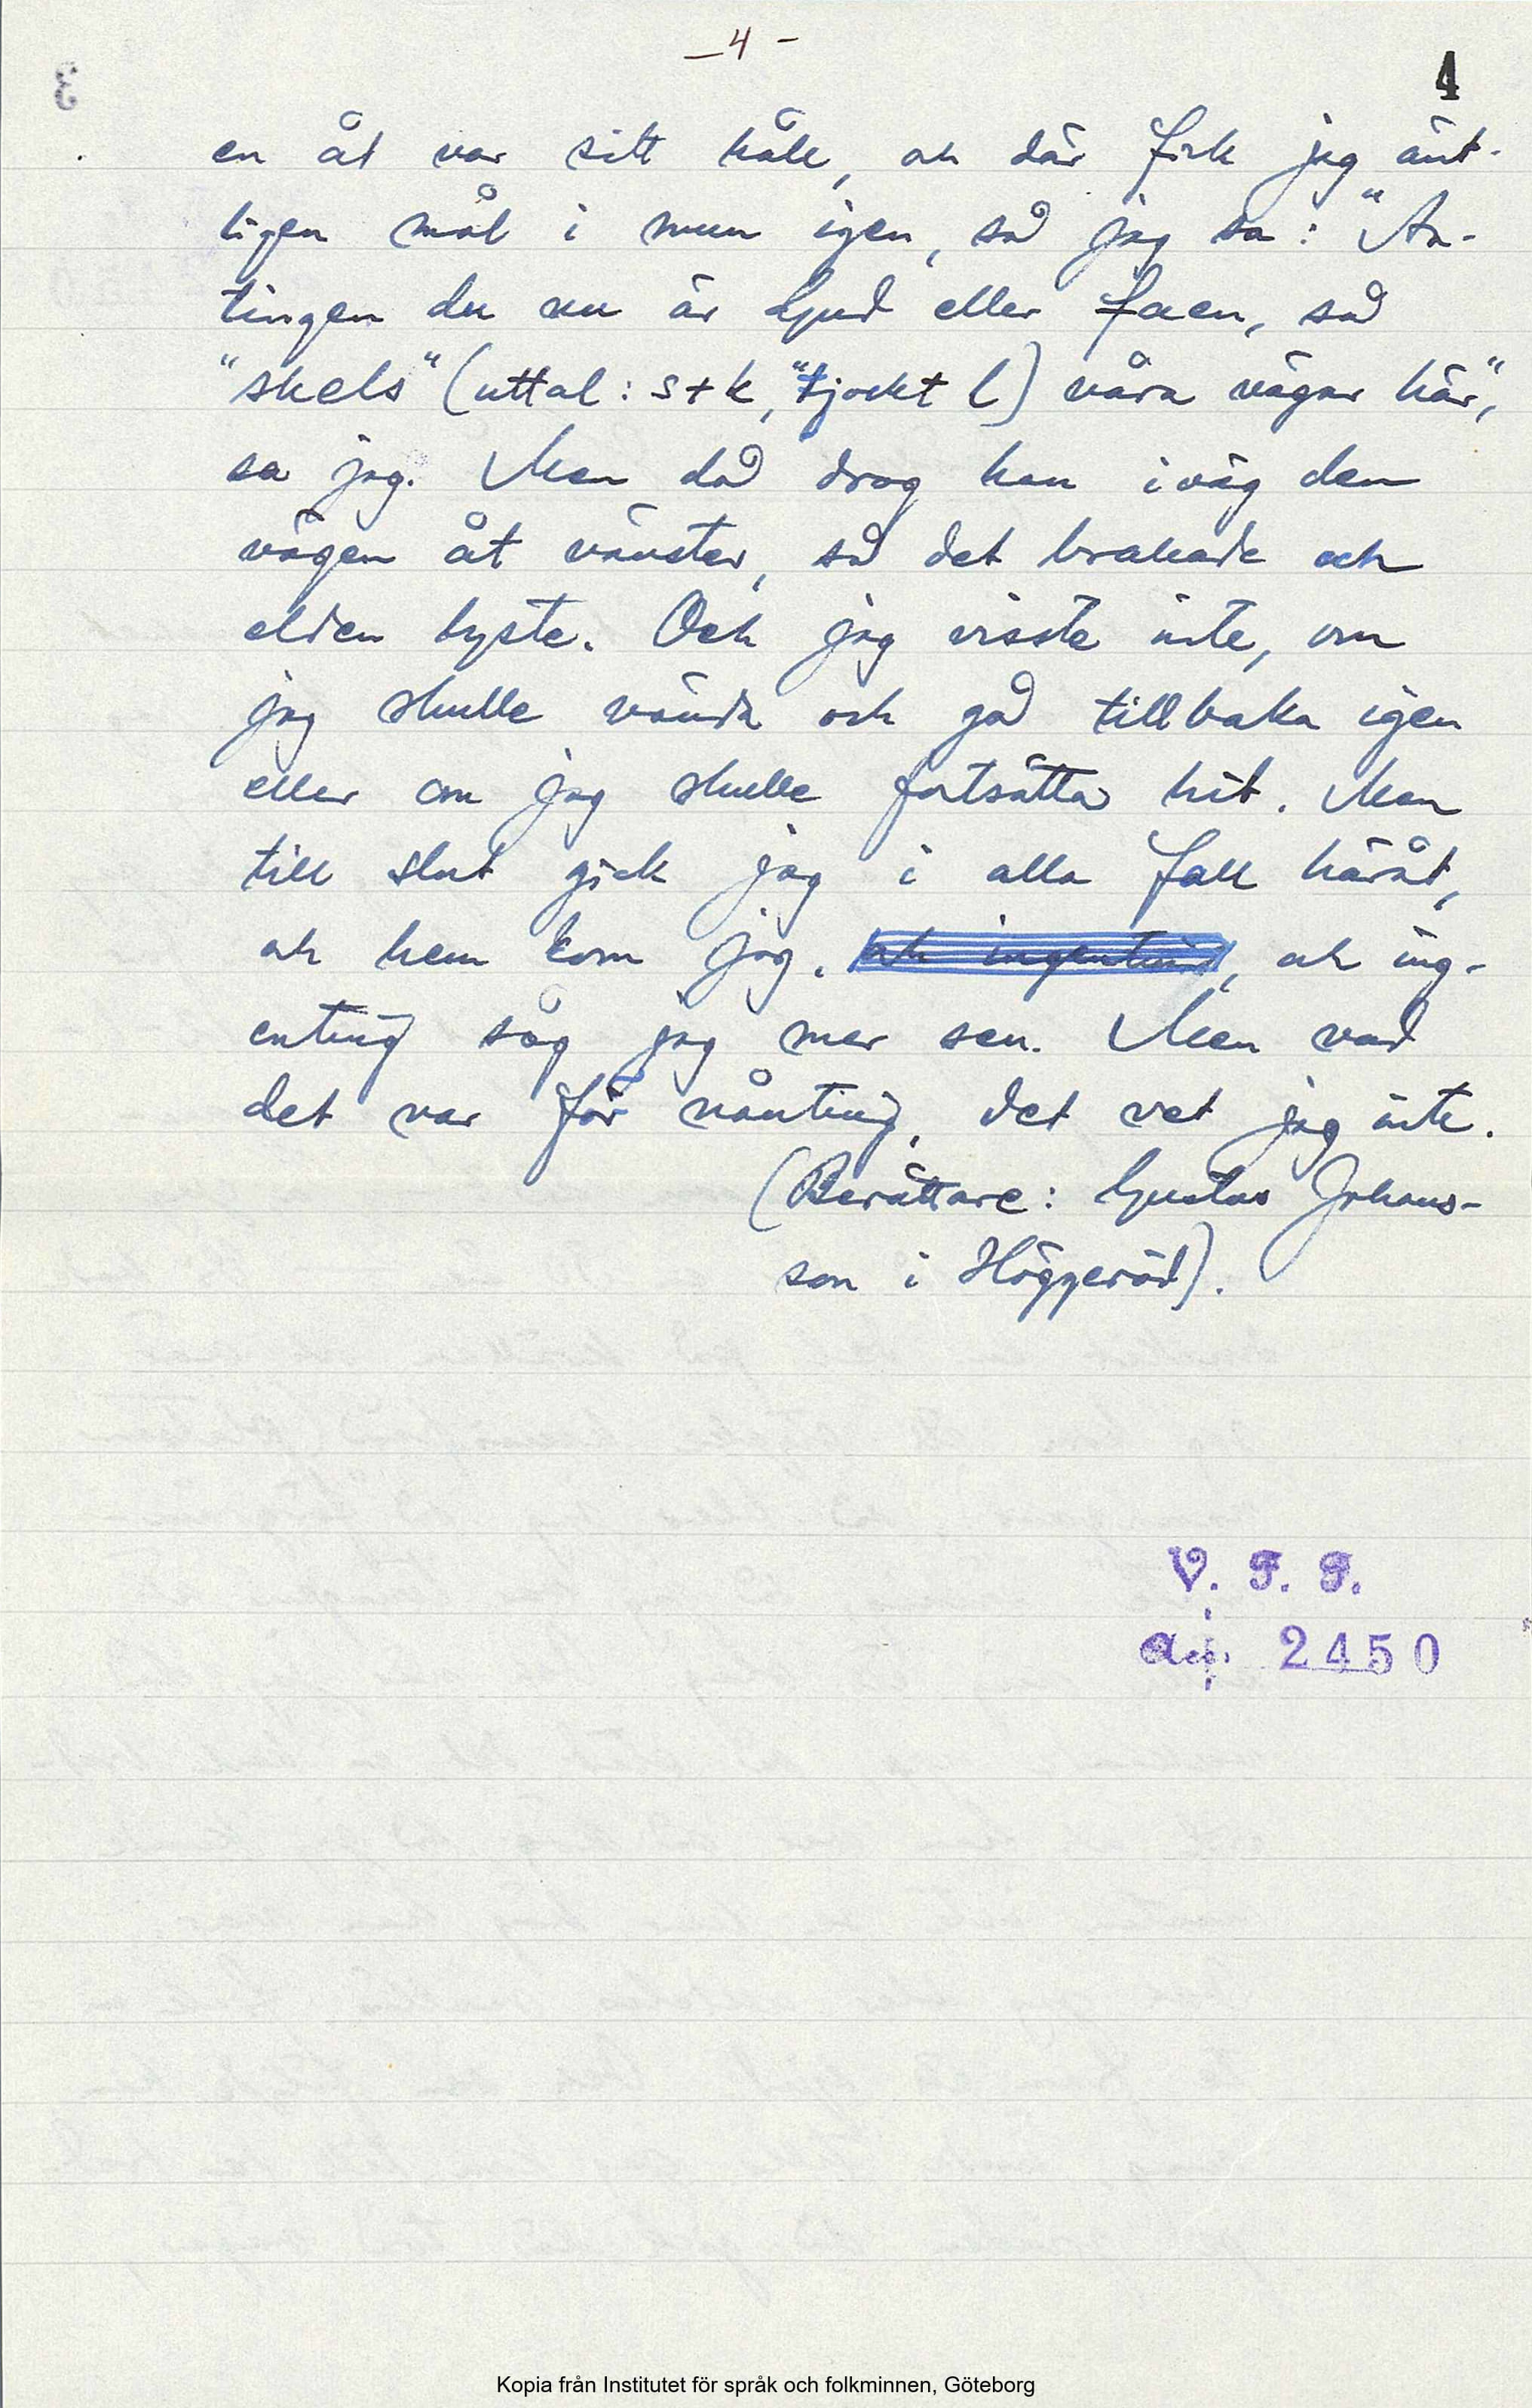 - 4 -
4
3
en åt var sitt håll, och där fick jag änt-
ligen mål i mun igen, så jag sa: "An-
tingen du nu är Gud eller faen, så
"skels" (uttal: s+k, "tjockt l) våra vägar här",
sa jag. Men då drog han iväg den
vägen åt vänster, så det brakade och
elden lyste. Och jag visste inte, om
jag skulle vända och gå tillbaka igen
eller om jag skulle fortsätta hit. Men
till slut gick jag i alla fall häråt,
och hem kom jag. och ingenting, och ing-
enting såg jag mer sen. Men vad
det var för nånting, det vet jag inte.
(Berättare: Gustav Johans-
son i Häggeröd).
V. F. F.
2450
Kopia från Institutet för språk och folkminnen, Göteborg